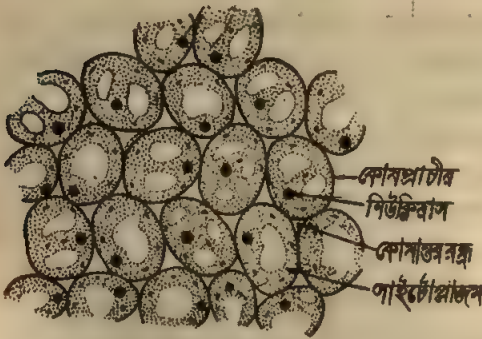 কোষপ্রাচীর
নিউক্লিয়াস
কোষান্তর রন্ধ্র
সাইটোপ্লাজম